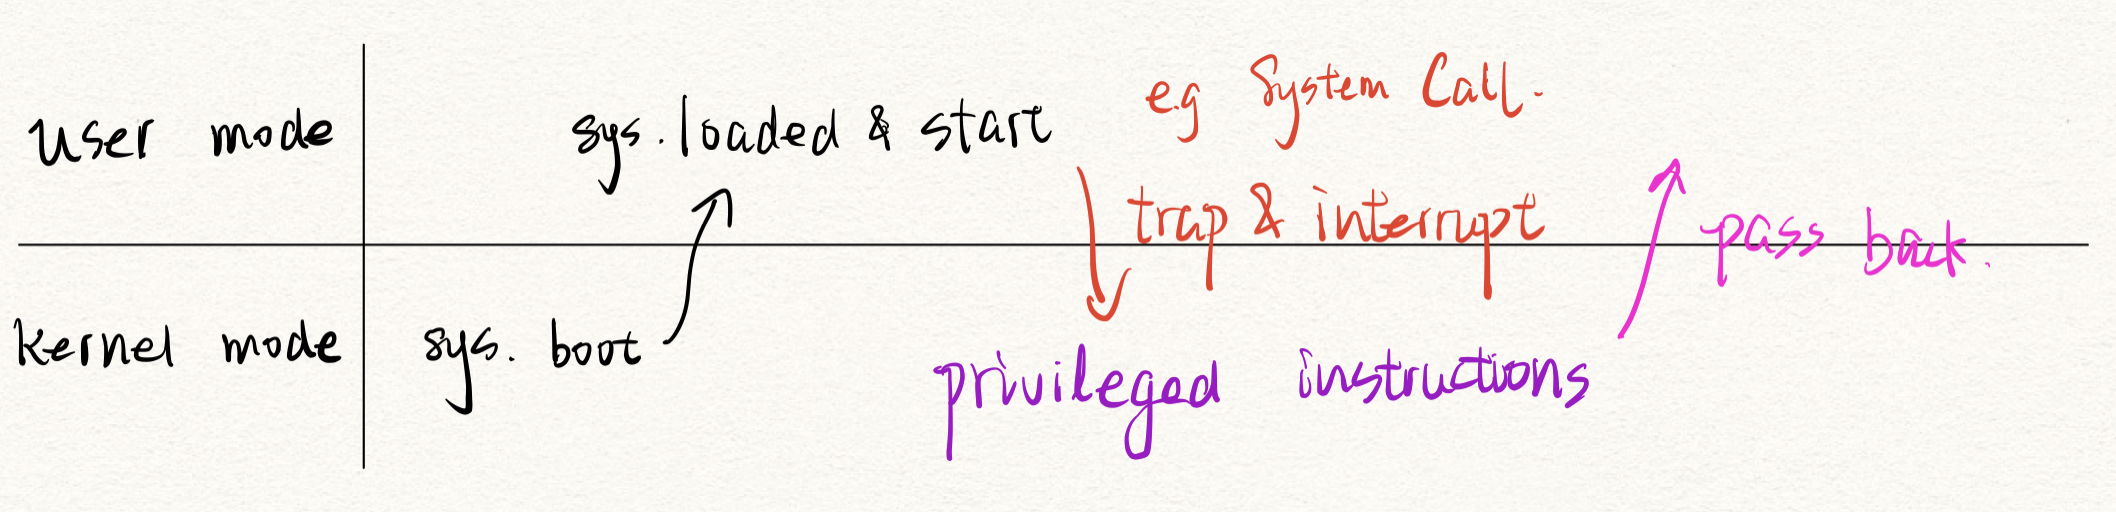 user mode
sys. loaded & start
e.g System Call.
trap & interrupt
pass back.
kernel mode
sys. boot
privileged instructions